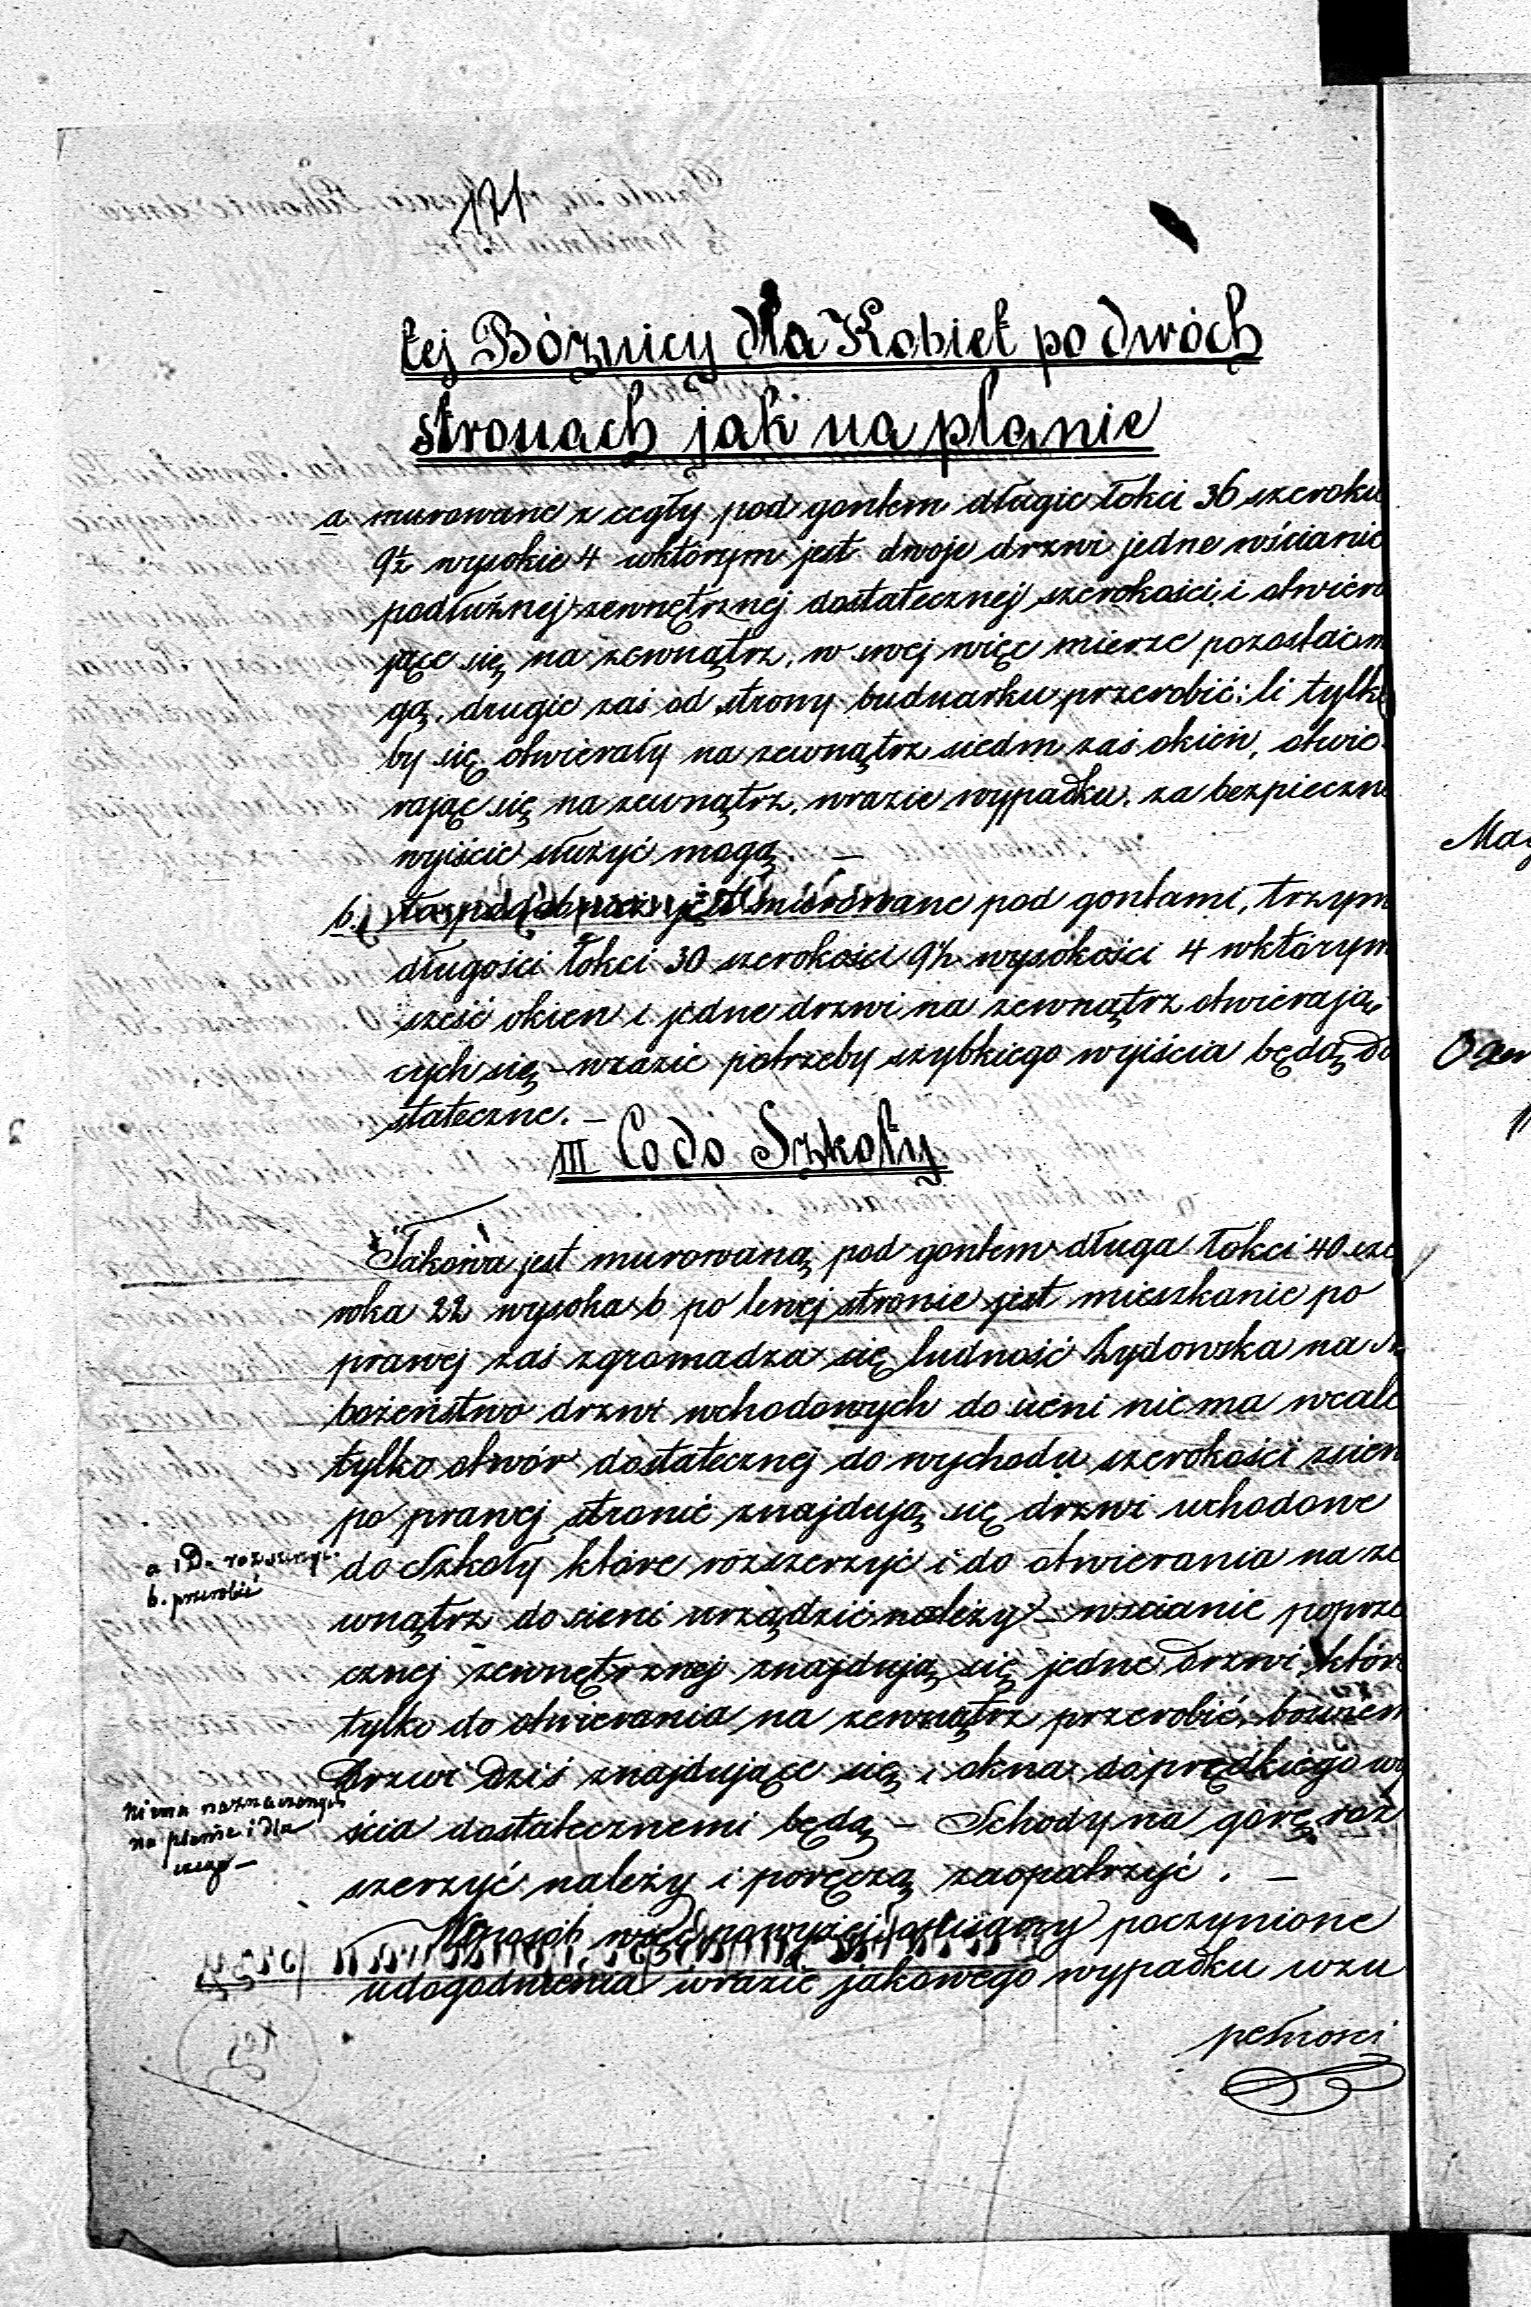 171
tej Bóżnicy dla Kobiet po dwóch
stronach jak na planie
a murowane z cegły pod gontem długie łokci 36 szeroku
9½ wysokie 4 wktórym jest dwoje drzwi jedne wścianie
podłużnej zewnętrznej dostatecznej szerokości i otwiera
jące się na zewnątrz, w swej więc mierze pozostać m
gą, drugie zaś od strony buduarku przerobić: li tylko
by się otwierały na zewnątrz siedm zaś okien, otwie
rając się na zewnątrz, wrazie wypadku, za bezpieczne
wyiście służyć mogą. —
b. murowane pod gontami, trzym
długości łokci 30 szerokości 9½ wysokości 4 wktórym
sześć okien i jedne drzwi na zewnątrz otwierają,
cych się – wrazie potrzeby szybkiego wyiścia będą do
stateczne. —
III Co do Szkoły
Takowa jest murowaną pod gontem długa łokci 40 sze
roka 22 wysoka 6 po lewej stronie jest mieszkanie po
prawej zaś zgromadza się ludność żydowska na
bożeństwo drzwi wchodowych do sieni nie ma wcale
tylko otwór dostatecznej do wychodu szerokości zsien
po prawej stronie znajdują się drzwi wchodowe
do Szkoły które rozszerzyć i do otwierania na ze
wnątrz do sieni urządzić należy – wścianie poprze
cznej zewnętrznej znajdują się jedne drzwi któr
tylko do otwierania na zewnątrz przerobić, bowiem
drzwi dziś znajdujące się i okna do prędkiego wy
ścia dostatecznemi będą – Schody na górę roz
szerzyć należy i poręczą zaopatrzyć. —
W sposób więc powyżej poczynione
udogodnienia wrazie jakowego wypadku wzu
pełności
a i D. rozszerzyć
b. przerobić
Niema naznaczonych
na planie i dla
czego —
May